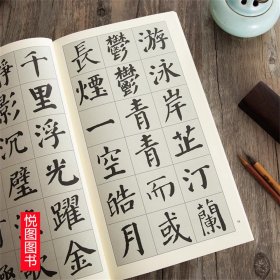 游泳岸芷汀蘭
鬱鬱青青而或
長煙一空皓月
千里浮光躍金
影沉璧
悦图图书